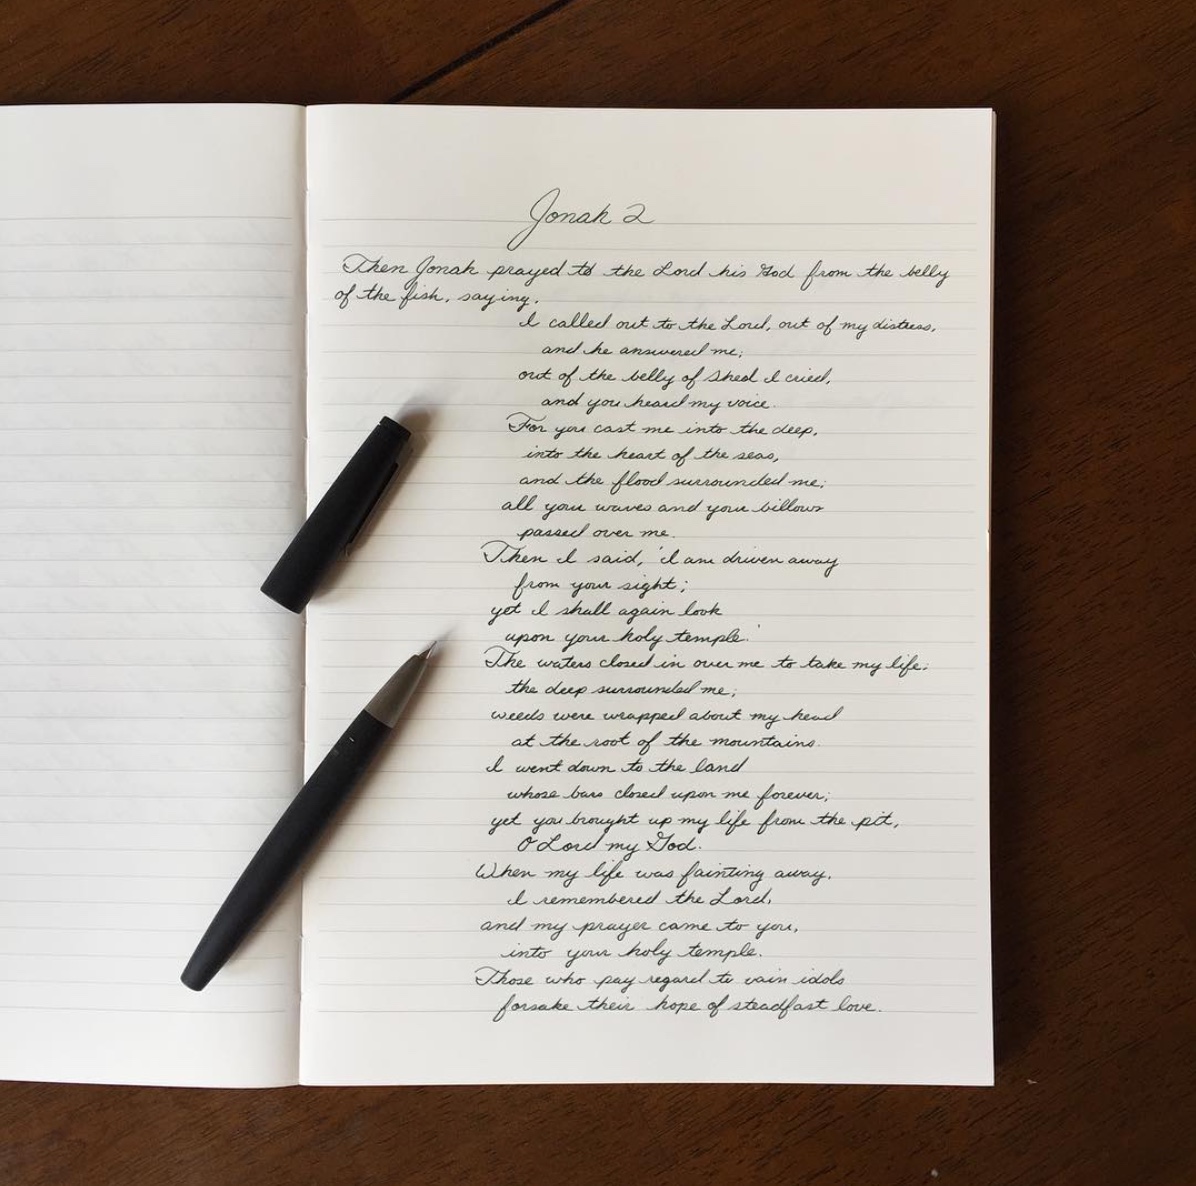 Jonah 2
Then Jonah prayed to the Lord his God from the belly
of the fish, saying,
I called out to the Lord, out of my distress,
and he answered me;
out of the belly of Sheol I cried,
and you heard my voice.
For you cast me into the deep,
into the heart of the seas,
and the flood surrounded me;
all your waves and your billows
passed over me.
Then I said, 'I am driven away
from your sight;
yet I shall again look
upon your holy temple.'
The waters closed in over me to take my life;
the deep surrounded me;
weeds were wrapped about my head
at the root of the mountains.
I went down to the land
whose bars closed upon me forever;
yet you brought up my life from the pit,
O Lord my God.
When my life was fainting away,
I remembered the Lord,
and my prayer came to you,
into your holy temple.
Those who pay regard to vain idols
forsake their hope of steadfast love.